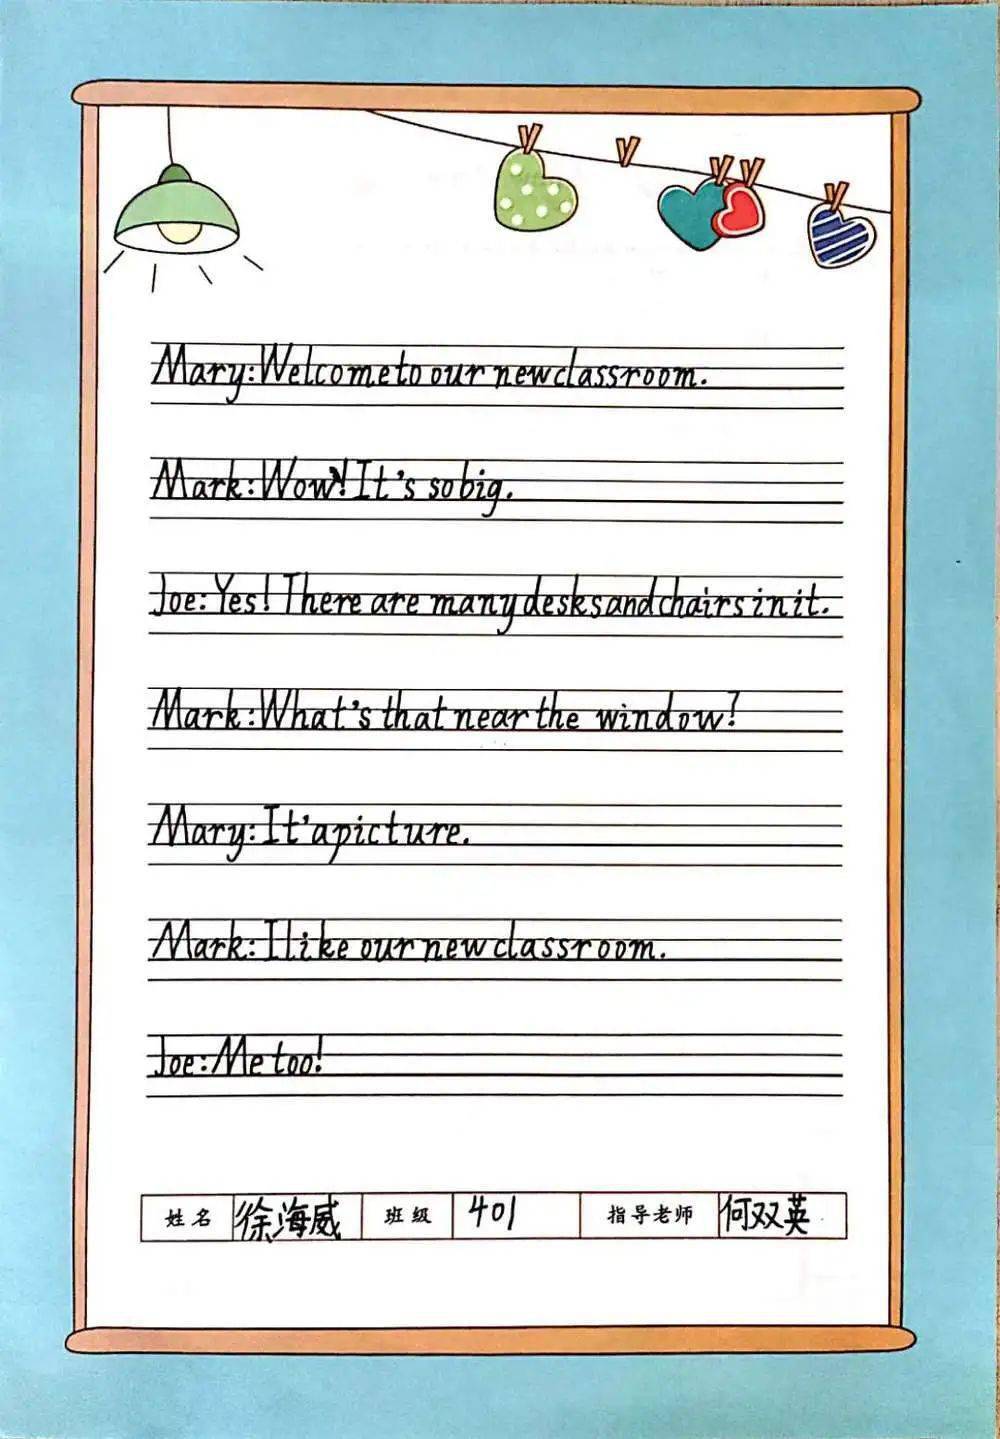 Mary: Welcome to our new classroom.
Mark: Wow! It's so big.
Joe: Yes! There are many desks and chairs in it.
Mark: What's that near the window?
Mary: It' a picture.
Mark: I like our new classroom.
Joe: Me too!
姓名 徐海威 班级 401 指导老师 何双英